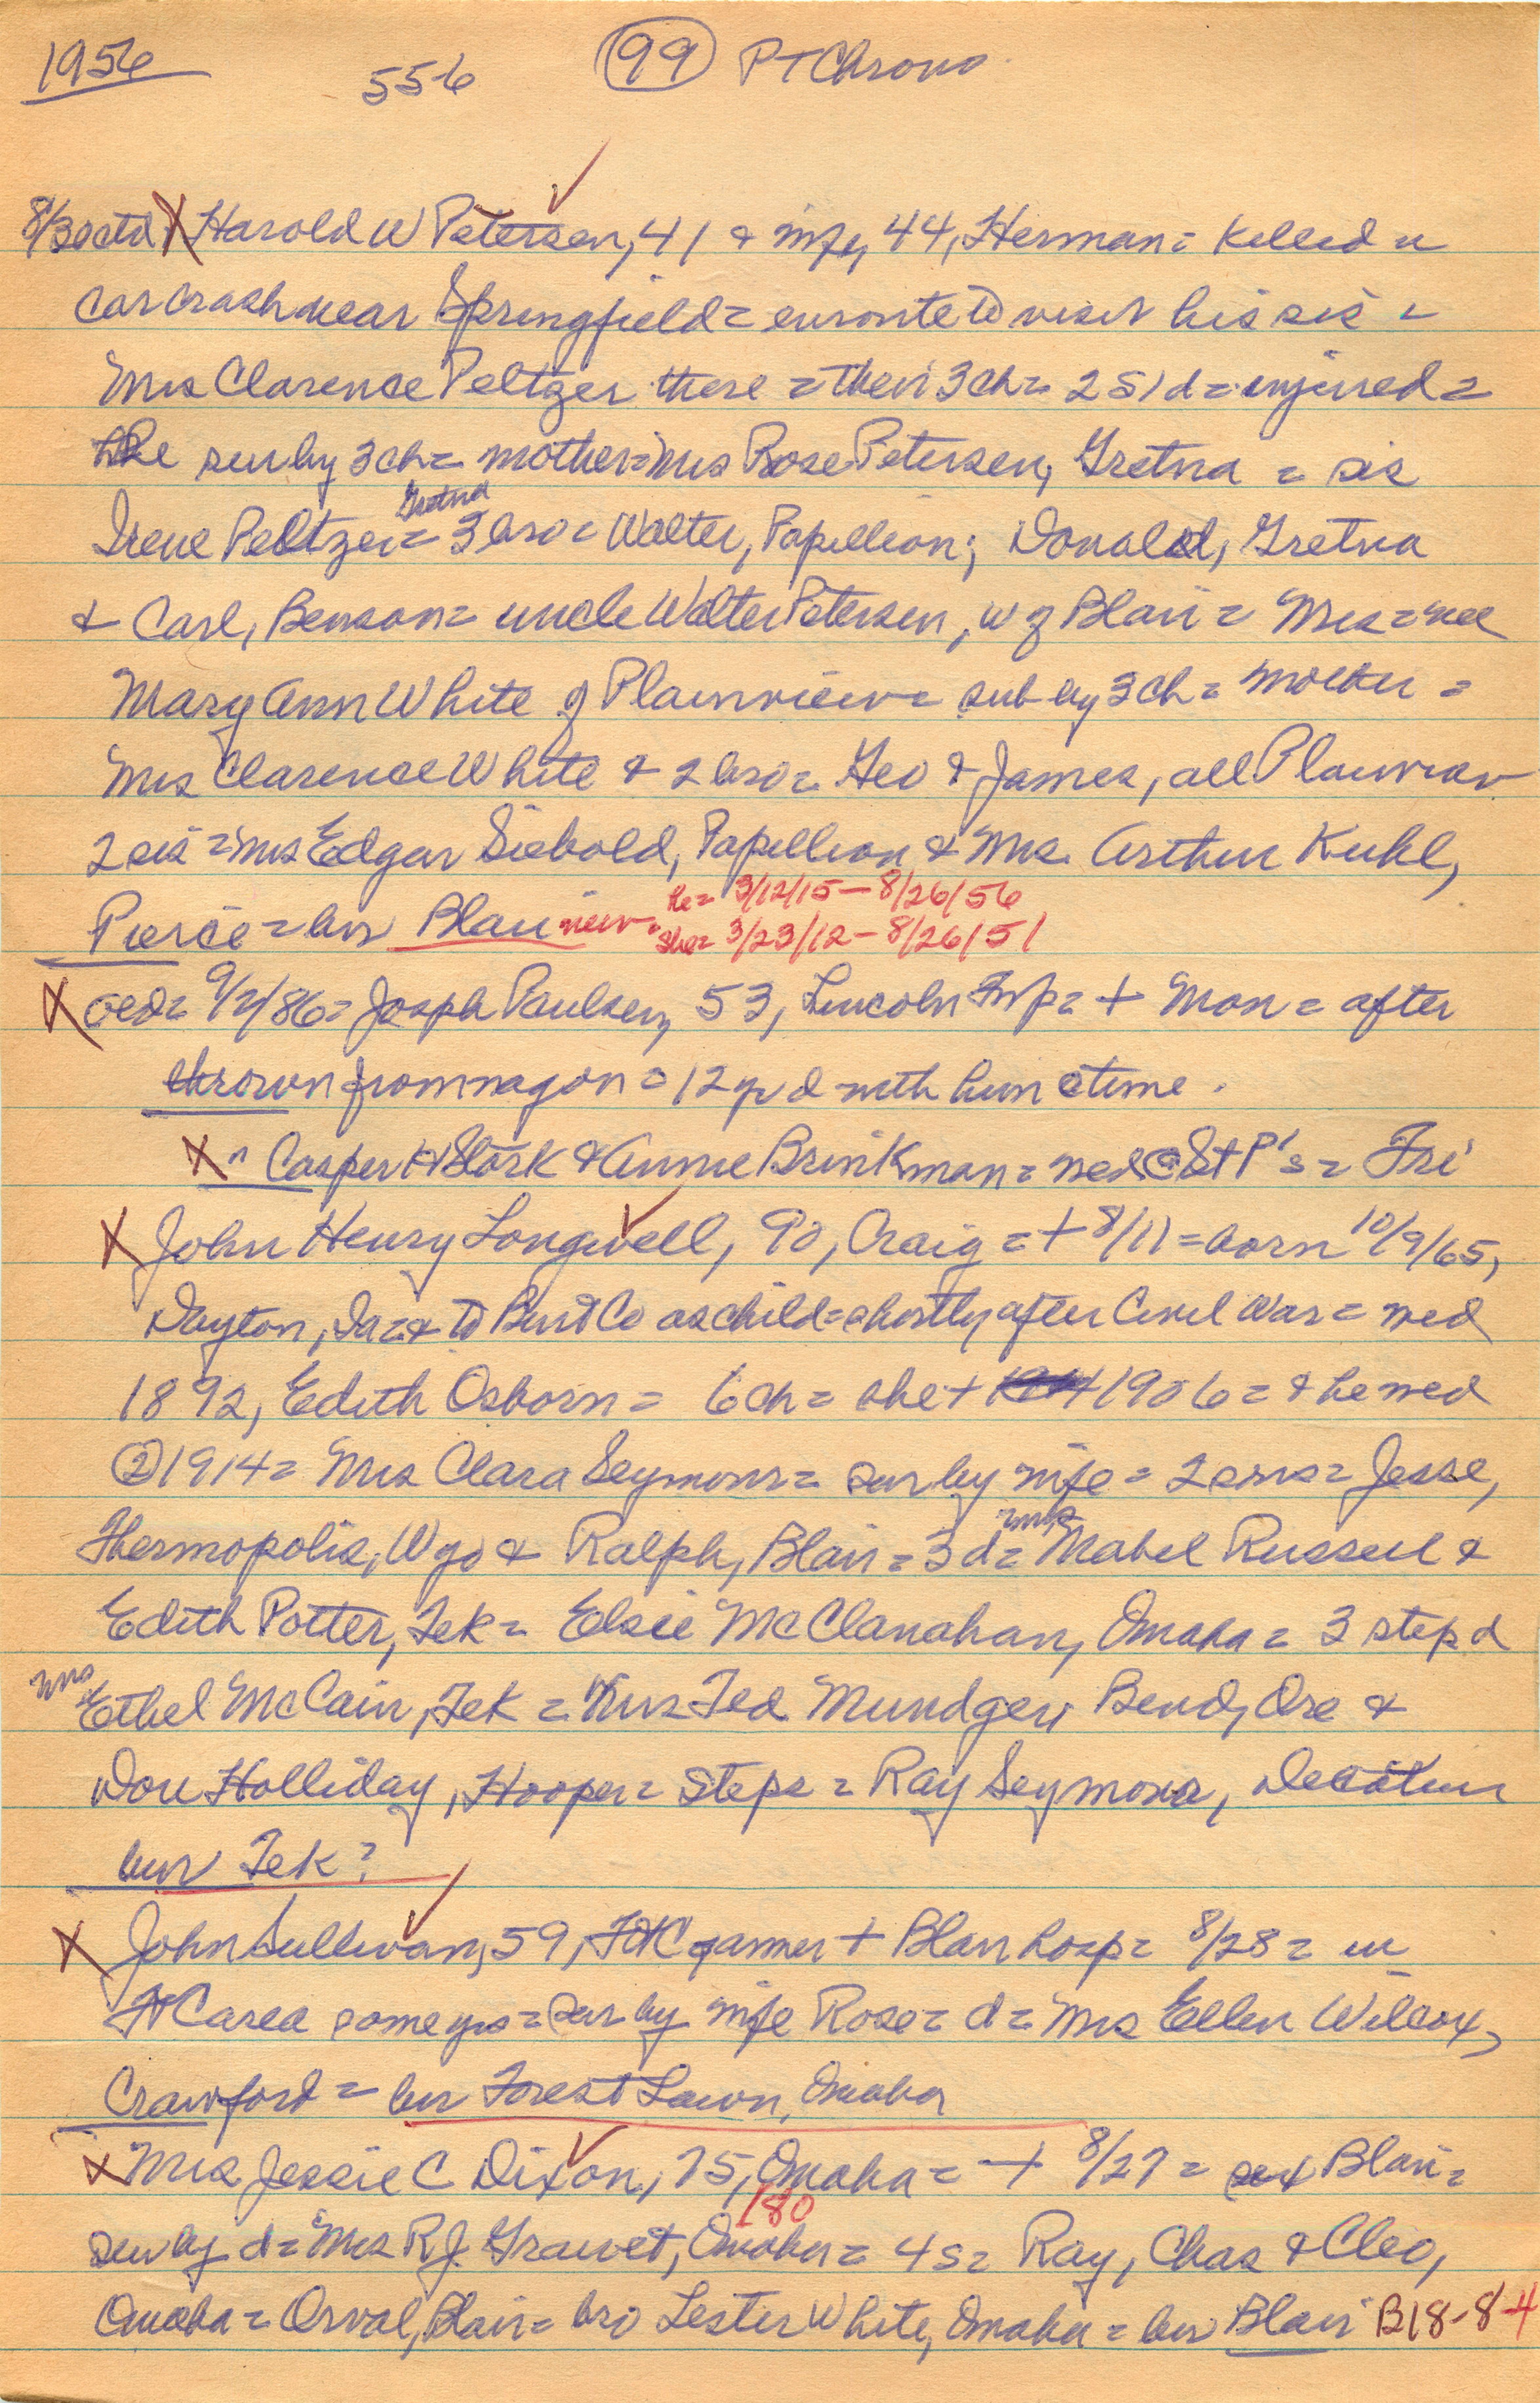 1956 556 99 PT Chrono
8/30 ctd X Harold W Petersen, 41 & wife, 44, Herman = killed in
car crash near Springfield = enroute to visit his sis =
Mrs Clarence Peltzer there = their 3 ch = 2 s 1 d = injured =
He sur by 3 ch = mother = Mrs Rose Petersen, Gretna = sis
Gretna
Irene Peltzer = 3 bro = Walter, Papillion; Donald, Gretna
& Carl, Benson = uncle Walter Petersen, w of Blair = Mrs = nee
Mary Ann White of Plainview = sur by 3 ch = mother =
Mrs Clarence White & 2 bro = Geo & James, all Plainview
2 sis = Mrs Edgar Siebold, Papillion & Mrs. Arthur Kuhl,
Pierce = bur Blair new = he = 3/12/15 - 8/26/56
she = 3/23/12 - 8/26/51
X 9/2/86 = Joseph Paulsen, 53, Lincoln Twp = + Mon = after
thrown from wagon = 12 yr d with him @ time.
X " Casper H Stork & Annie Brinkman = wed @ St P's = Fri
X John Henry Longwell, 90, Craig = + 8/11 = born 10/9/65,
Dayton, Ia = & to Burt Co as child = shortly after Civil War = wed
1892, Edith Osborn = 6 ch = she + 1906 = & he wed
② 1914 = Mrs Clara Seymour = sur by wife = 2 sons = Jesse,
Thermopolis, Wyo & Ralph, Blair = 3 d = Mrs Mabel Russell &
Edith Potter, Tek = Elsie McClanahan, Omaha = 3 step d
Mrs Ethel McCain, Tek = Mrs Ted Mundger, Bend, Ore &
Don Holliday, Hooper = steps = Ray Seymour, Decatur
bur Tek?
X John Sullivan, 59, Ft C farmer + Blair hosp = 8/28 = in
Ft C area some yrs = sur by wife Rose = d = Mrs Ellen Wilcox,
Crawford = bur Forest Lawn, Omaha
X Mrs Jessie C Dixon, 75, Omaha = + 8/27 = Blair =
180
sur by d = Mrs R J. Grauet, Omaha = 4 s = Ray, Chas & Cleo,
Omaha = Orval, Blair = bro Lester White, Omaha = bur Blair B18-8-4